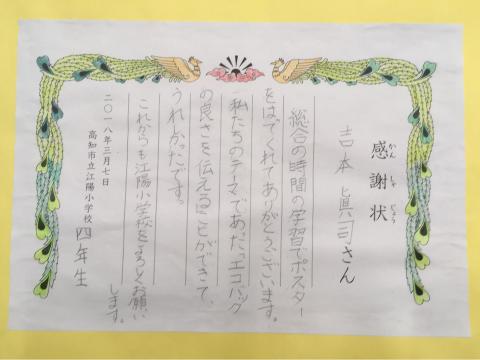 感謝状
かんしゃじょう
吉本眞司さん
総合の時間の学習でポスター
をはってくれてありがとうございます。
私たちのテーマであった「エコバッグ
の良さを伝える」ことができて、
うれしかったです。
これからも江陽小学校をよろしくお願い
します。
二〇一八年三月七日
高知市立江陽小学校 四年生